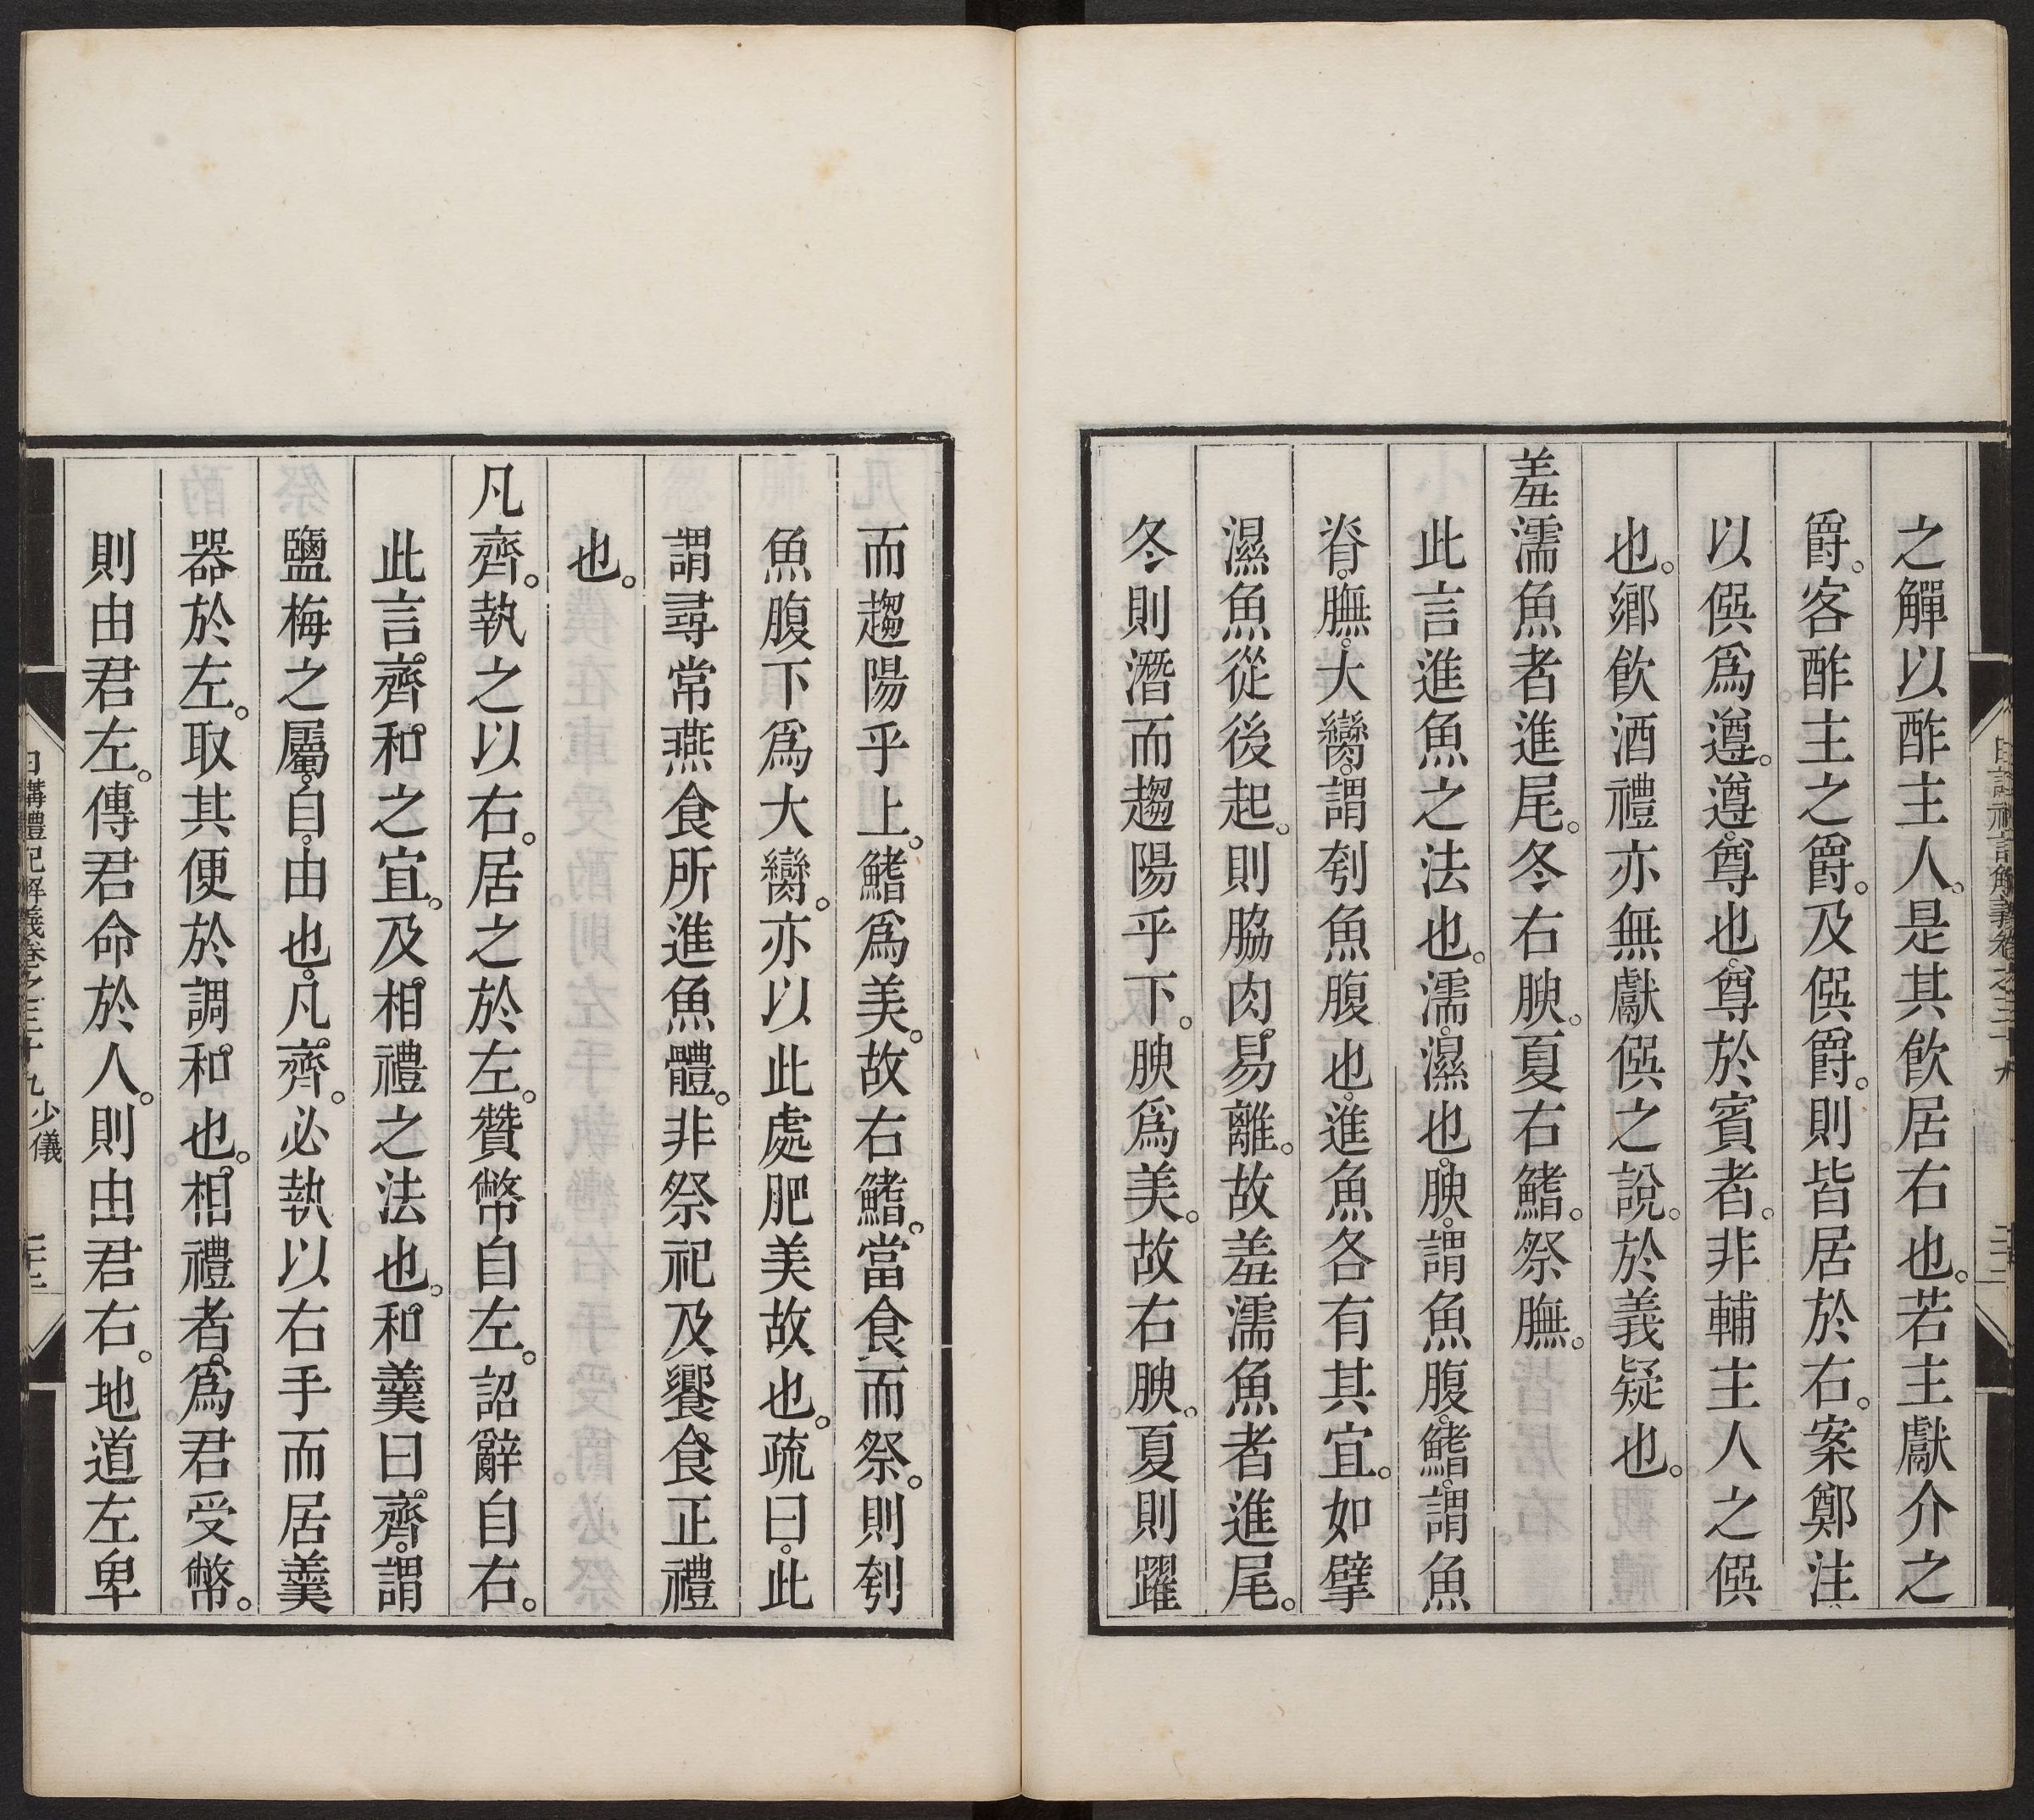 之觶以酢主人。是其飲居右也。若主獻介之
爵。客酢主之爵。及僎爵。則皆居於右。案鄭注
以僎爲遵。遵。尊也。尊於賓者。非輔主人之僎
也。鄉飲酒禮亦無獻僎之說。於義疑也。
羞濡魚者進尾。冬右腴。夏右鰭。祭膴。
此言進魚之法也。濡。濕也。腴。謂魚腹。鰭。謂魚
脊。膴。大臠。謂刳魚腹也。進魚各有其宜。如擘
濕魚從後起。則脇肉易離。故羞濡魚者進尾。
冬則潛而趨陽乎下。腴爲美。故右腴。夏則躍
而趨陽乎上。鰭爲美。故右鰭。當食而祭。則刳
魚腹下爲大臠。亦以此處肥美故也。疏曰。此
謂尋常燕食所進魚體。非祭祀及饗食正禮
也。
凡齊。執之以右。居之於左。贊幣自左。詔辭自右。
此言齊和之宜。及相禮之法也。和羹曰齊。謂
鹽梅之屬。自。由也。凡齊。必執以右手而居羹
器於左。取其便於調和也。相禮者。爲君受幣。
則由君左。傳君命於人。則由君右。地道左卑
日講禮記解義卷之三十九 少儀